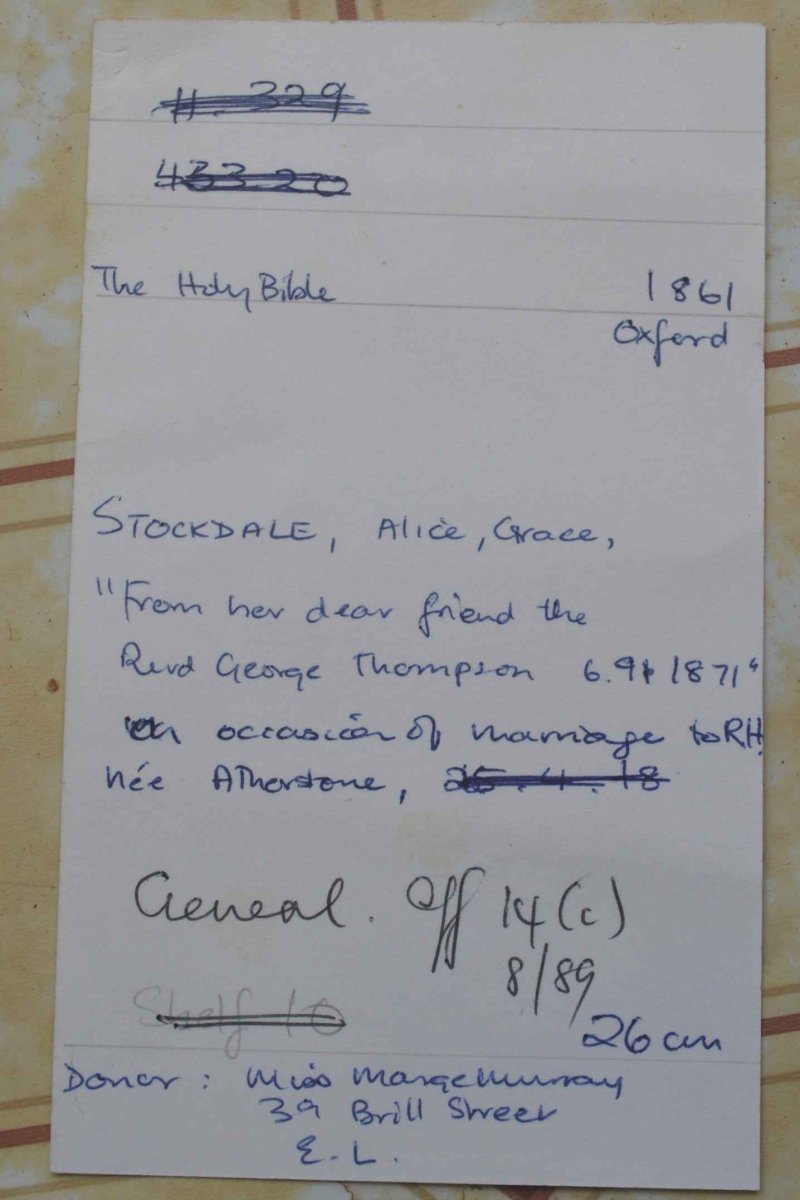 H. 329
43320
The Holy Bible 1861
Oxford
STOCKDALE, Alice, Grace,
"From her dear friend the
Revd George Thompson 6.9th 1871"
on occasion of marriage to RH.
née Atherstone, 25.4.18
Geneal. Off 14(c)
8/89
Shelf 10
26 cm
Donor: Miss Marge Murray
39 Brill Street
E.L.